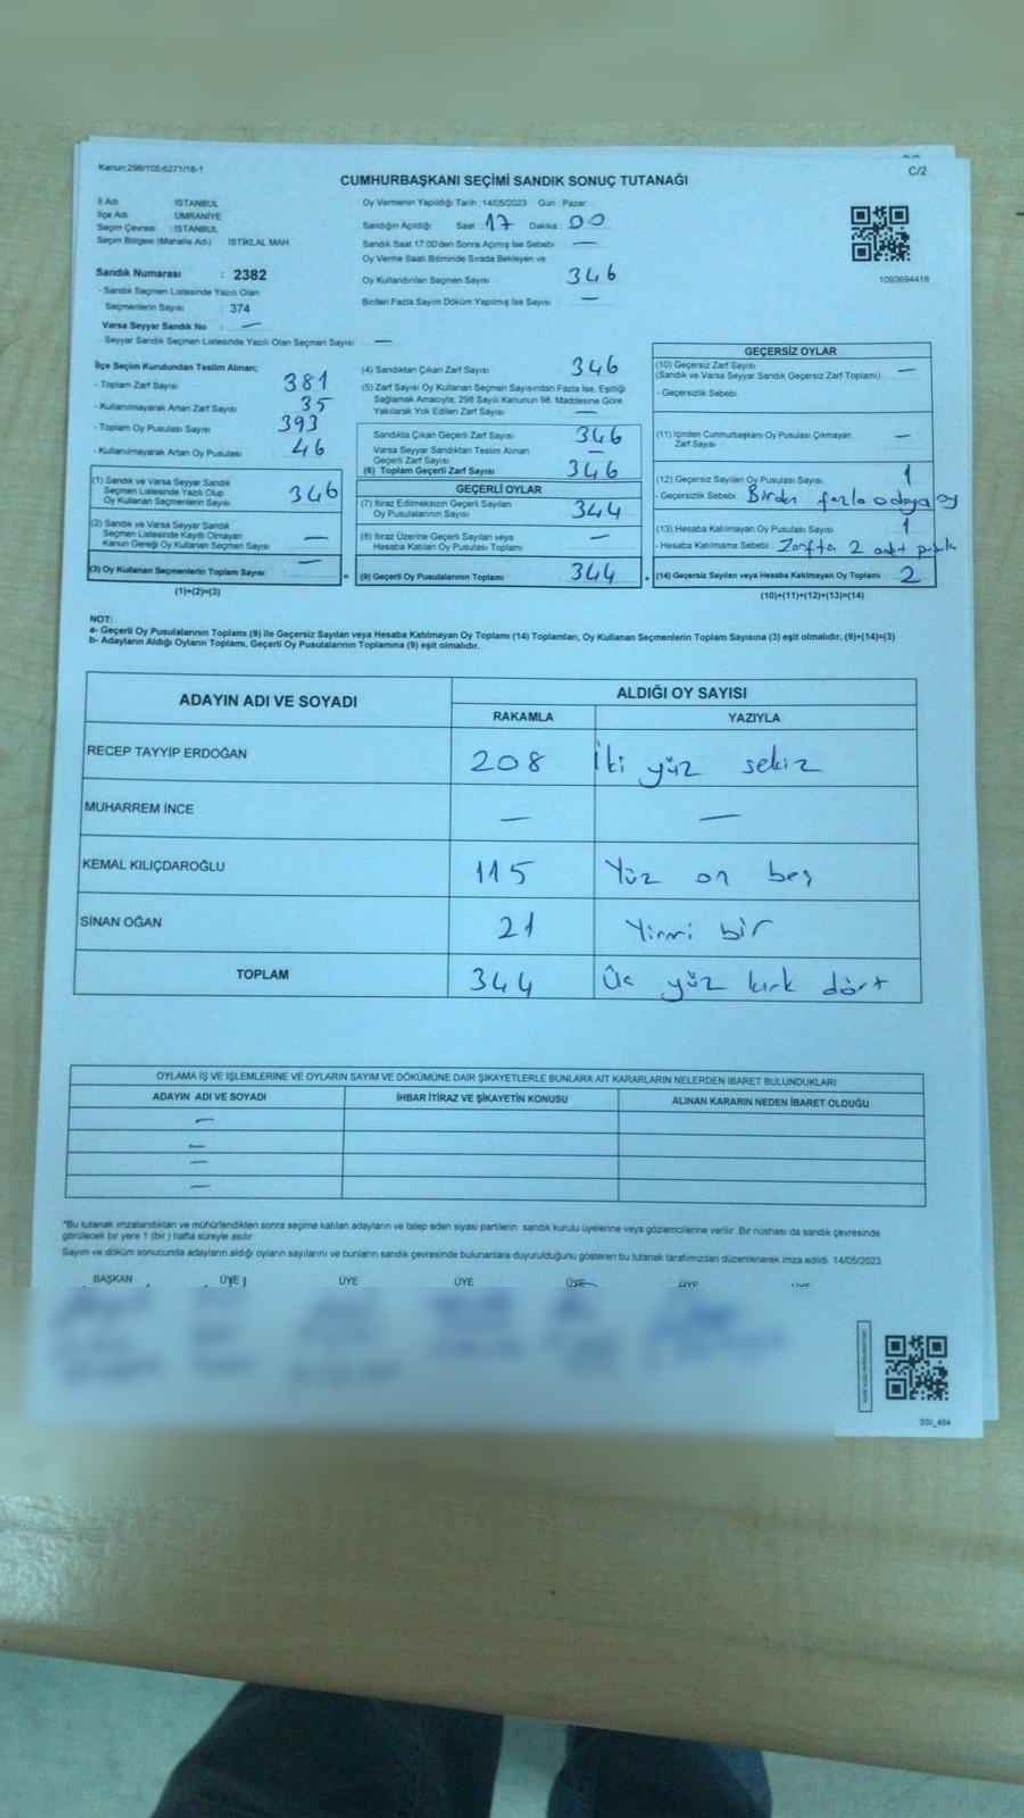 Kanun:298/105-6271/16-1
C/2
CUMHURBAŞKANI SEÇİMİ SANDIK SONUÇ TUTANAĞI
İl Adı İSTANBUL
İlçe Adı ÜMRANİYE
Seçim Çevresi :İSTANBUL
Seçim Bölgesi (Mahalle Adı) İSTİKLAL MAH
Sandık Numarası : 2382
- Sandık Seçmen Listesinde Yazılı Olan
Seçmenlerin Sayısı : 374
Varsa Seyyar Sandık No : —
- Seyyar Sandık Seçmen Listesinde Yazılı Olan Seçmen Sayısı —
Oy Vermenin Yapıldığı Tarih :14/05/2023 Gün : Pazar
Sandığın Açıldığı Saat : 17 Dakika : 00
Sandık Saat 17.00'den Sonra Açılmış İse Sebebi : —
Oy Verme Saati Bitiminde Sırada Bekleyen ve
Oy Kullandırılan Seçmen Sayısı 346
Birden Fazla Sayım Döküm Yapılmış İse Sayısı —
1093694418
İlçe Seçim Kurulundan Teslim Alınan;
- Toplam Zarf Sayısı 381
- Kullanılmayarak Artan Zarf Sayısı 35
- Toplam Oy Pusulası Sayısı 393
- Kullanılmayarak Artan Oy Pusulası 46
(1) Sandık ve Varsa Seyyar Sandık
Seçmen Listesinde Yazılı Olup
Oy Kullanan Seçmenlerin Sayısı 346
(2) Sandık ve Varsa Seyyar Sandık
Seçmen Listesinde Kayıtlı Olmayan
Kanun Gereği Oy Kullanan Seçmen Sayısı —
(3) Oy Kullanan Seçmenlerin Toplam Sayısı —
(1)+(2)=(3)
(4) Sandıktan Çıkan Zarf Sayısı 346
(5) Zarf Sayısı Oy Kullanan Seçmen Sayısından Fazla İse, Eşitliği
Sağlamak Amacıyla, 298 Sayılı Kanunun 98. Maddesine Göre
Yakılarak Yok Edilen Zarf Sayısı —
Sandıkta Çıkan Geçerli Zarf Sayısı 346
Varsa Seyyar Sandıktan Teslim Alınan
Geçerli Zarf Sayısı —
(6) Toplam Geçerli Zarf Sayısı 346
GEÇERLİ OYLAR
(7) İtiraz Edilmeksizin Geçerli Sayılan
Oy Pusulalarının Sayısı 344
(8) İtiraz Üzerine Geçerli Sayılan veya
Hesaba Katılan Oy Pusulası Toplamı —
(9) Geçerli Oy Pusulalarının Toplamı 344
GEÇERSİZ OYLAR
(10) Geçersiz Zarf Sayısı
(Sandık ve Varsa Seyyar Sandık Geçersiz Zarf Toplamı) —
- Geçersizlik Sebebi
(11) İçinden Cumhurbaşkanı Oy Pusulası Çıkmayan
Zarf Sayısı —
(12) Geçersiz Sayılan Oy Pusulası Sayısı 1
- Geçersizlik Sebebi Birden fazla adaya oy
(13) Hesaba Katılmayan Oy Pusulası Sayısı 1
- Hesaba Katılmama Sebebi Zarfta 2 adet
(14) Geçersiz Sayılan veya Hesaba Katılmayan Oy Toplamı 2
(10)+(11)+(12)+(13)=(14)
NOT:
a- Geçerli Oy Pusulalarının Toplamı (9) ile Geçersiz Sayılan veya Hesaba Katılmayan Oy Toplamı (14) Toplamları, Oy Kullanan Seçmenlerin Toplam Sayısına (3) eşit olmalıdır, (9)+(14)=(3)
b- Adayların Aldığı Oyların Toplamı, Geçerli Oy Pusulalarının Toplamına (9) eşit olmalıdır.
ADAYIN ADI VE SOYADI ALDIĞI OY SAYISI
RAKAMLA YAZIYLA
RECEP TAYYİP ERDOĞAN 208 İki yüz sekiz
MUHARREM İNCE — —
KEMAL KILIÇDAROĞLU 115 Yüz on beş
SİNAN OĞAN 21 Yirmi bir
TOPLAM 344 Üç yüz kırk dört
OYLAMA İŞ VE İŞLEMLERİNE VE OYLARIN SAYIM VE DÖKÜMÜNE DAİR ŞİKAYETLERLE BUNLARA AİT KARARLARIN NELERDEN İBARET BULUNDUKLARI
ADAYIN ADI VE SOYADI İHBAR İTİRAZ VE ŞİKAYETİN KONUSU ALINAN KARARIN NEDEN İBARET OLDUĞU
—
—
—
—
*Bu tutanak imzalandıktan ve mühürlendikten sonra seçime katılan adayların ve talep eden siyasi partilerin sandık kurulu üyelerine veya gözlemcilerine verilir. Bir nüshası da sandık çevresinde
görülecek bir yere 1 (bir) hafta süreyle asılır
Sayım ve döküm sonucunda adayların aldığı oyların sayılarını ve bunların sandık çevresinde bulunanlara duyurulduğunu gösteren bu tutanak tarafımızdan düzenlenerek imza edildi. 14/05/2023
BAŞKAN ÜYE ÜYE ÜYE ÜYE ÜYE ÜYE